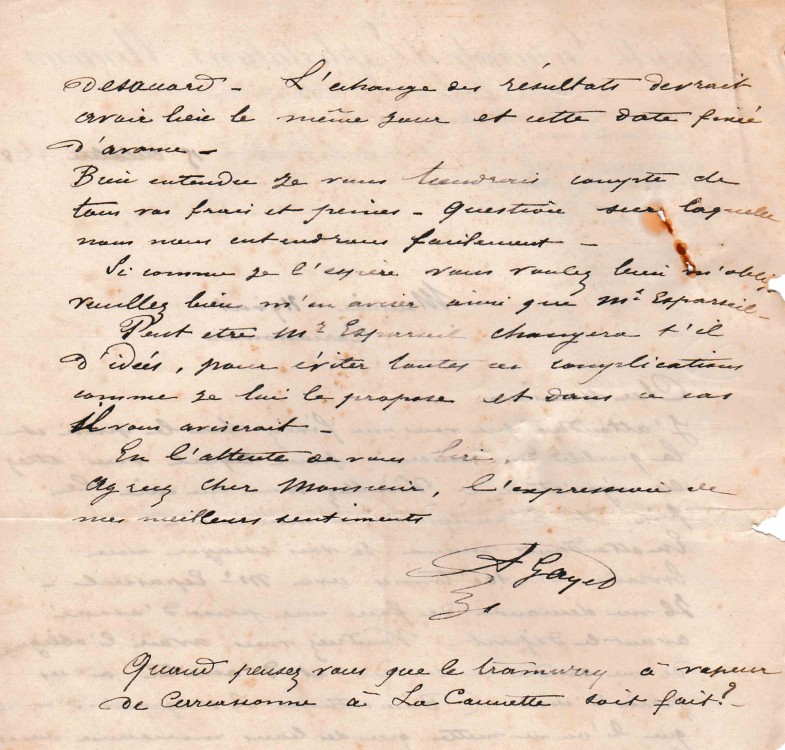 L'échange des résultats devrait
avoir lieu le même jour et cette date fixée
d'avance -
Bien entendu je vous tiendrais compte de
tous vos frais et peines - Question sur laquelle
nous nous entendrons facilement -
Si comme je l'espère vous voulez bien m'oblig
veuillez bien m'en aviser ainsi que Mr Esparseil -
Peut etre Mr Esparseil changera t'il
d'idées, pour éviter toutes ces complications
comme je lui le propose et dans ce cas
Il vous aviserait -
En l'attente de vous lire,
Agreez Cher Monsieur, l'expression de
mes meilleurs sentiments
A Gayet
Quand pensez vous que le tramway à vapeur
de Carcassonne à La Caunette soit fait ?